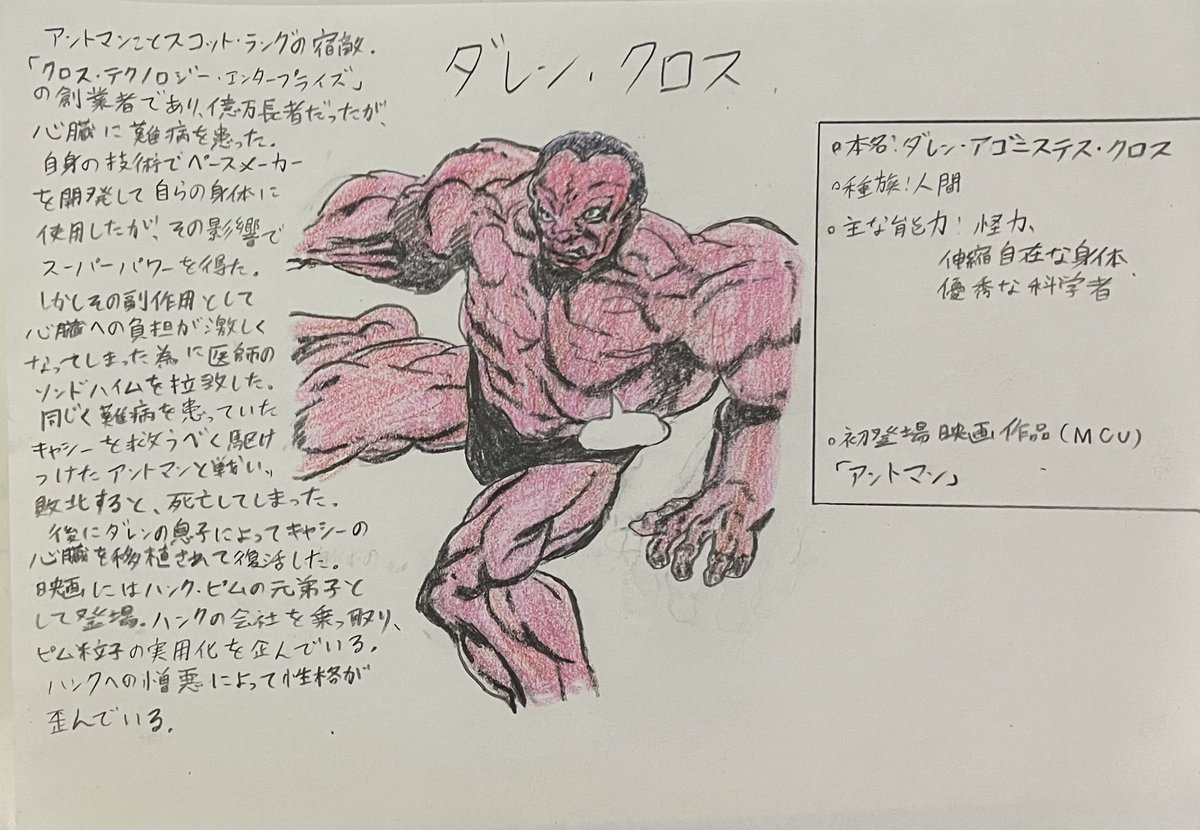 ダレン・クロス
アントマンことスコット・ラングの宿敵.
「クロス・テクノロジー・エンタープライズ」
の創業者であり、億万長者だったが、
心臓に難病を患った.
自身の技術でペースメーカー
を開発して自らの身体に
使用したが、その影響で
スーパーパワーを得た.
しかしその副作用として
心臓への負担が激しく
なってしまった為に医師の
ソンドハイムを拉致した.
同じく難病を患っていた
キャシーを救うべく駆け
つけたアントマンと戦い、
敗北すると、死亡してしまった.
後にダレンの息子によってキャシーの
心臓を移植されて復活した.
映画にはハンク・ピムの元弟子と
して登場.ハンクの会社を乗っ取り、
ピム粒子の実用化を企んでいる.
ハンクへの憎悪によって性格が
歪んでいる.
本名:ダレン・アゴニステス・クロス
種族:人間
主な能力:怪力、
伸縮自在な身体、
優秀な科学者
初登場映画作品(MCU)
「アントマン」